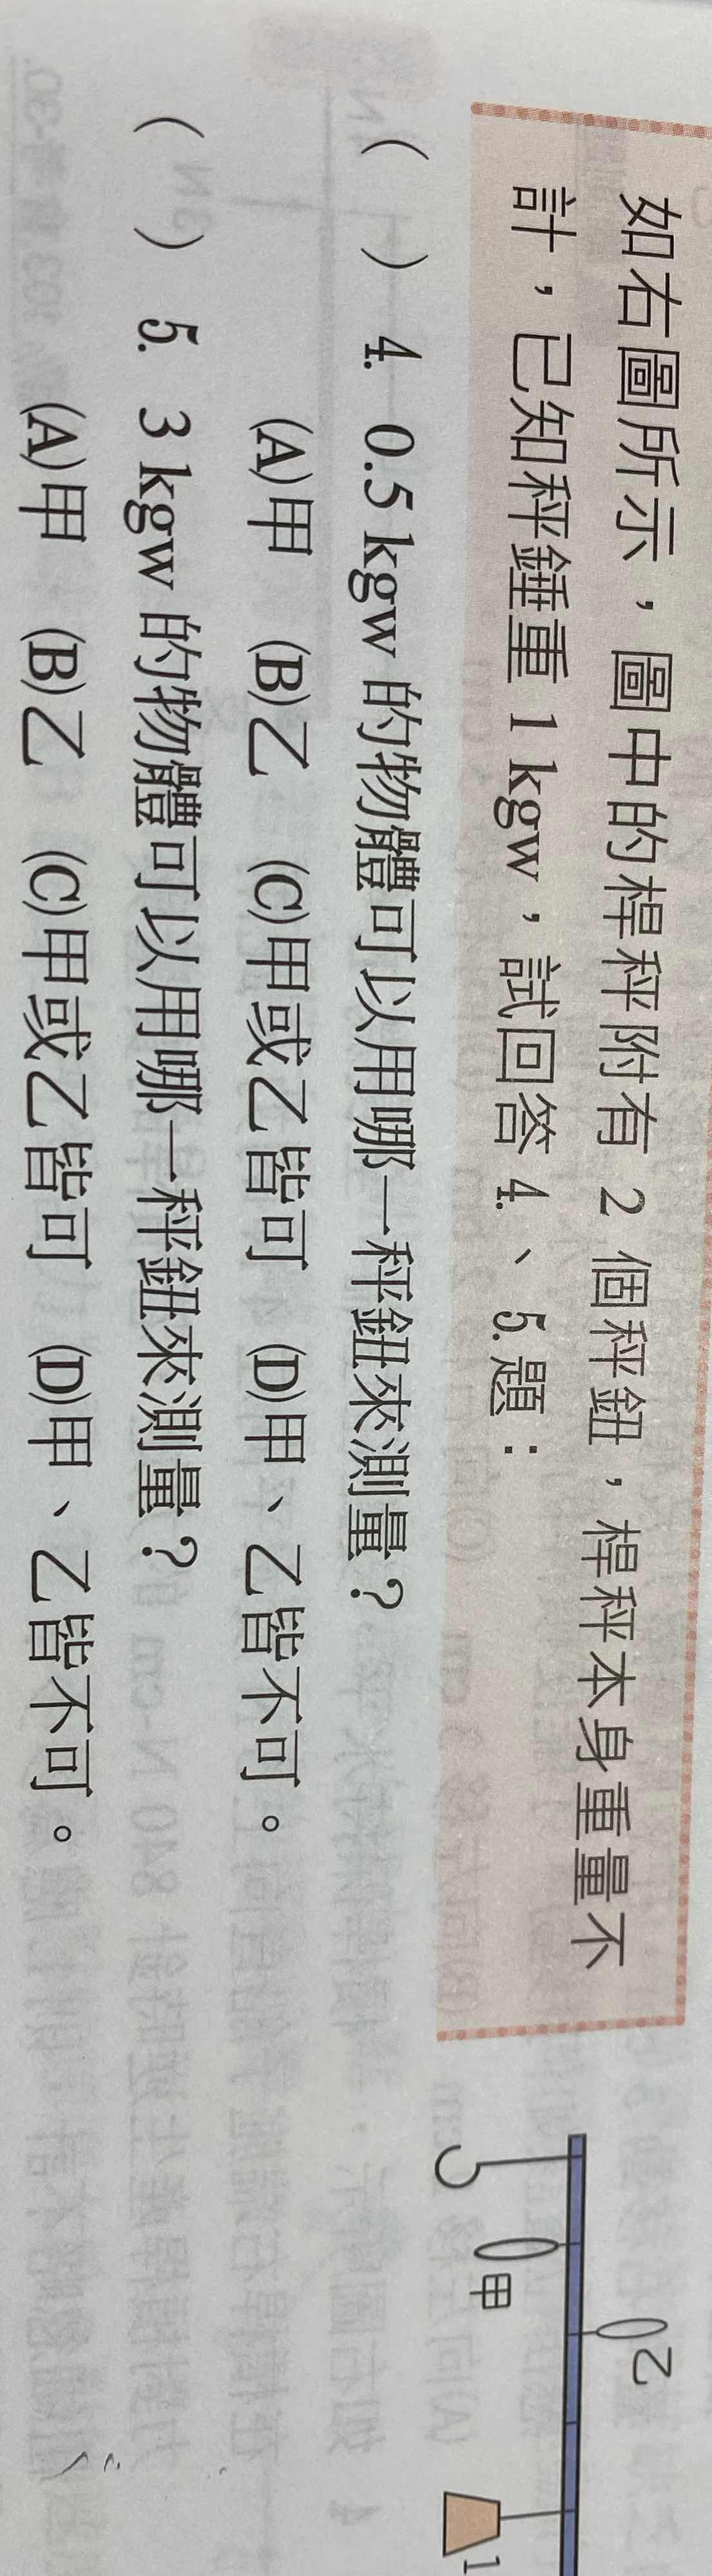 如右圖所示，圖中的桿秤附有 2 個秤鈕，桿秤本身重量不
計，已知秤錘重 1 kgw，試回答 4.、5.題：
（　）4. 0.5 kgw 的物體可以用哪一秤鈕來測量？
(A)甲 (B)乙 (C)甲或乙皆可 (D)甲、乙皆不可。
（　）5. 3 kgw 的物體可以用哪一秤鈕來測量？
(A)甲 (B)乙 (C)甲或乙皆可 (D)甲、乙皆不可。
乙
甲
1